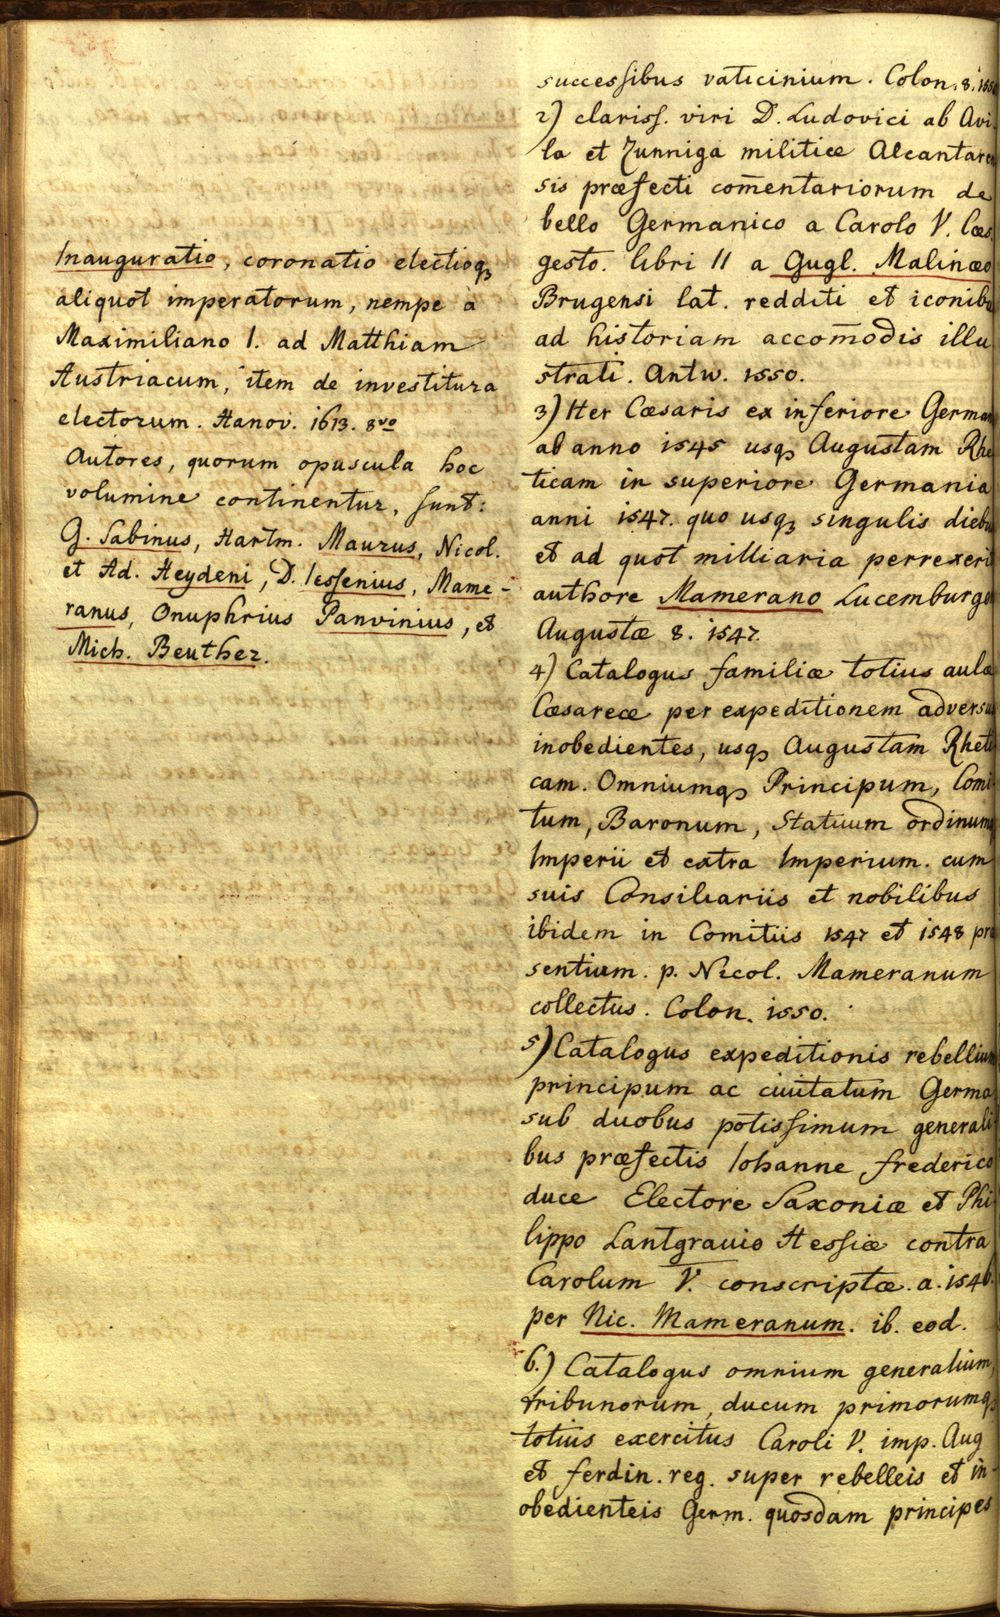 Inauguratio, coronatio electioq;
aliquot imperatorum, nempe a
Maximiliano I. ad Matthiam
Austriacum, item de investitura
electorum. Hanov. 1613. 8vo
Autores, quorum opuscula hoc
volumine continentur, sunt:
G. Sabinus, Hartm. Maurus, Nicol.
et Ad. Heydeni, D. Iessenius, Mame-
ranus, Onuphrius Panvinius, et
Mich. Beuther.
successibus vaticinium. Colon. 8.
2) clariss. viri D. Ludovici ab Avi
la et Zunniga militiæ Alcantare
sis præfecti com̄entariorum de
bello Germanico a Carolo V. Cæs.
gesto. libri II a Gugl. Malinæo
Brugensi lat. redditi et iconibu
ad historiam accom̄odis illu
strati. Antw. 1550.
3) Iter Cæsaris ex inferiore German
ab anno 1545 usq; Augustam Rhe
ticam in superiore Germania
anni 1547. quo usq; singulis diebu
et ad quot milliaria perrexeri
authore Mamerano Lucemburgo
Augustæ 8. 1547.
4) Catalogus familiæ totius aulæ
Cæsareæ per expeditionem adversu
inobedientes, usq; Augustam Rheti
cam. Omniumq; Principum, Comi
tum, Baronum, Statuum ordinumq
Imperii et extra Imperium. cum
suis Consiliariis et nobilibus
ibidem in Comitiis 1547 et 1548 præ
sentium. p. Nicol. Mameranum
collectus. Colon. 1550.
5) Catalogus expeditionis rebellium
principum ac ciuitatum Germa
sub duobus potissimum generali
bus præfectis Iohanne frederico
duce Electore Saxoniæ et Phi
lippo Lantgrauio Hessiæ contra
Carolum V. conscriptæ. a. 1546.
per Nic. Mameranum. ib. eod.
6.) Catalogus omnium generalium,
tribunorum, ducum primorumq;
totius exercitus Caroli V. imp. Aug
et ferdin. reg. super rebelleis et in-
obedienteis Germ. quosdam principes